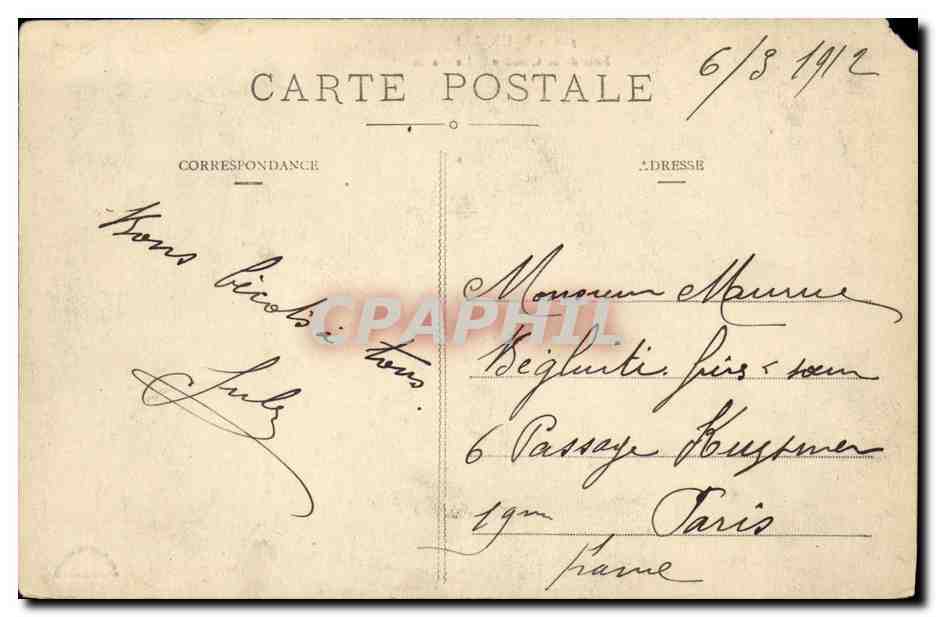 6/3 1912
CARTE POSTALE
CORRESPONDANCE
ADRESSE
Bons bécots à tous.
Jules
Monsieur Maurice
frère & sœur
6 Passage
19me Paris
France
CPAPHIL